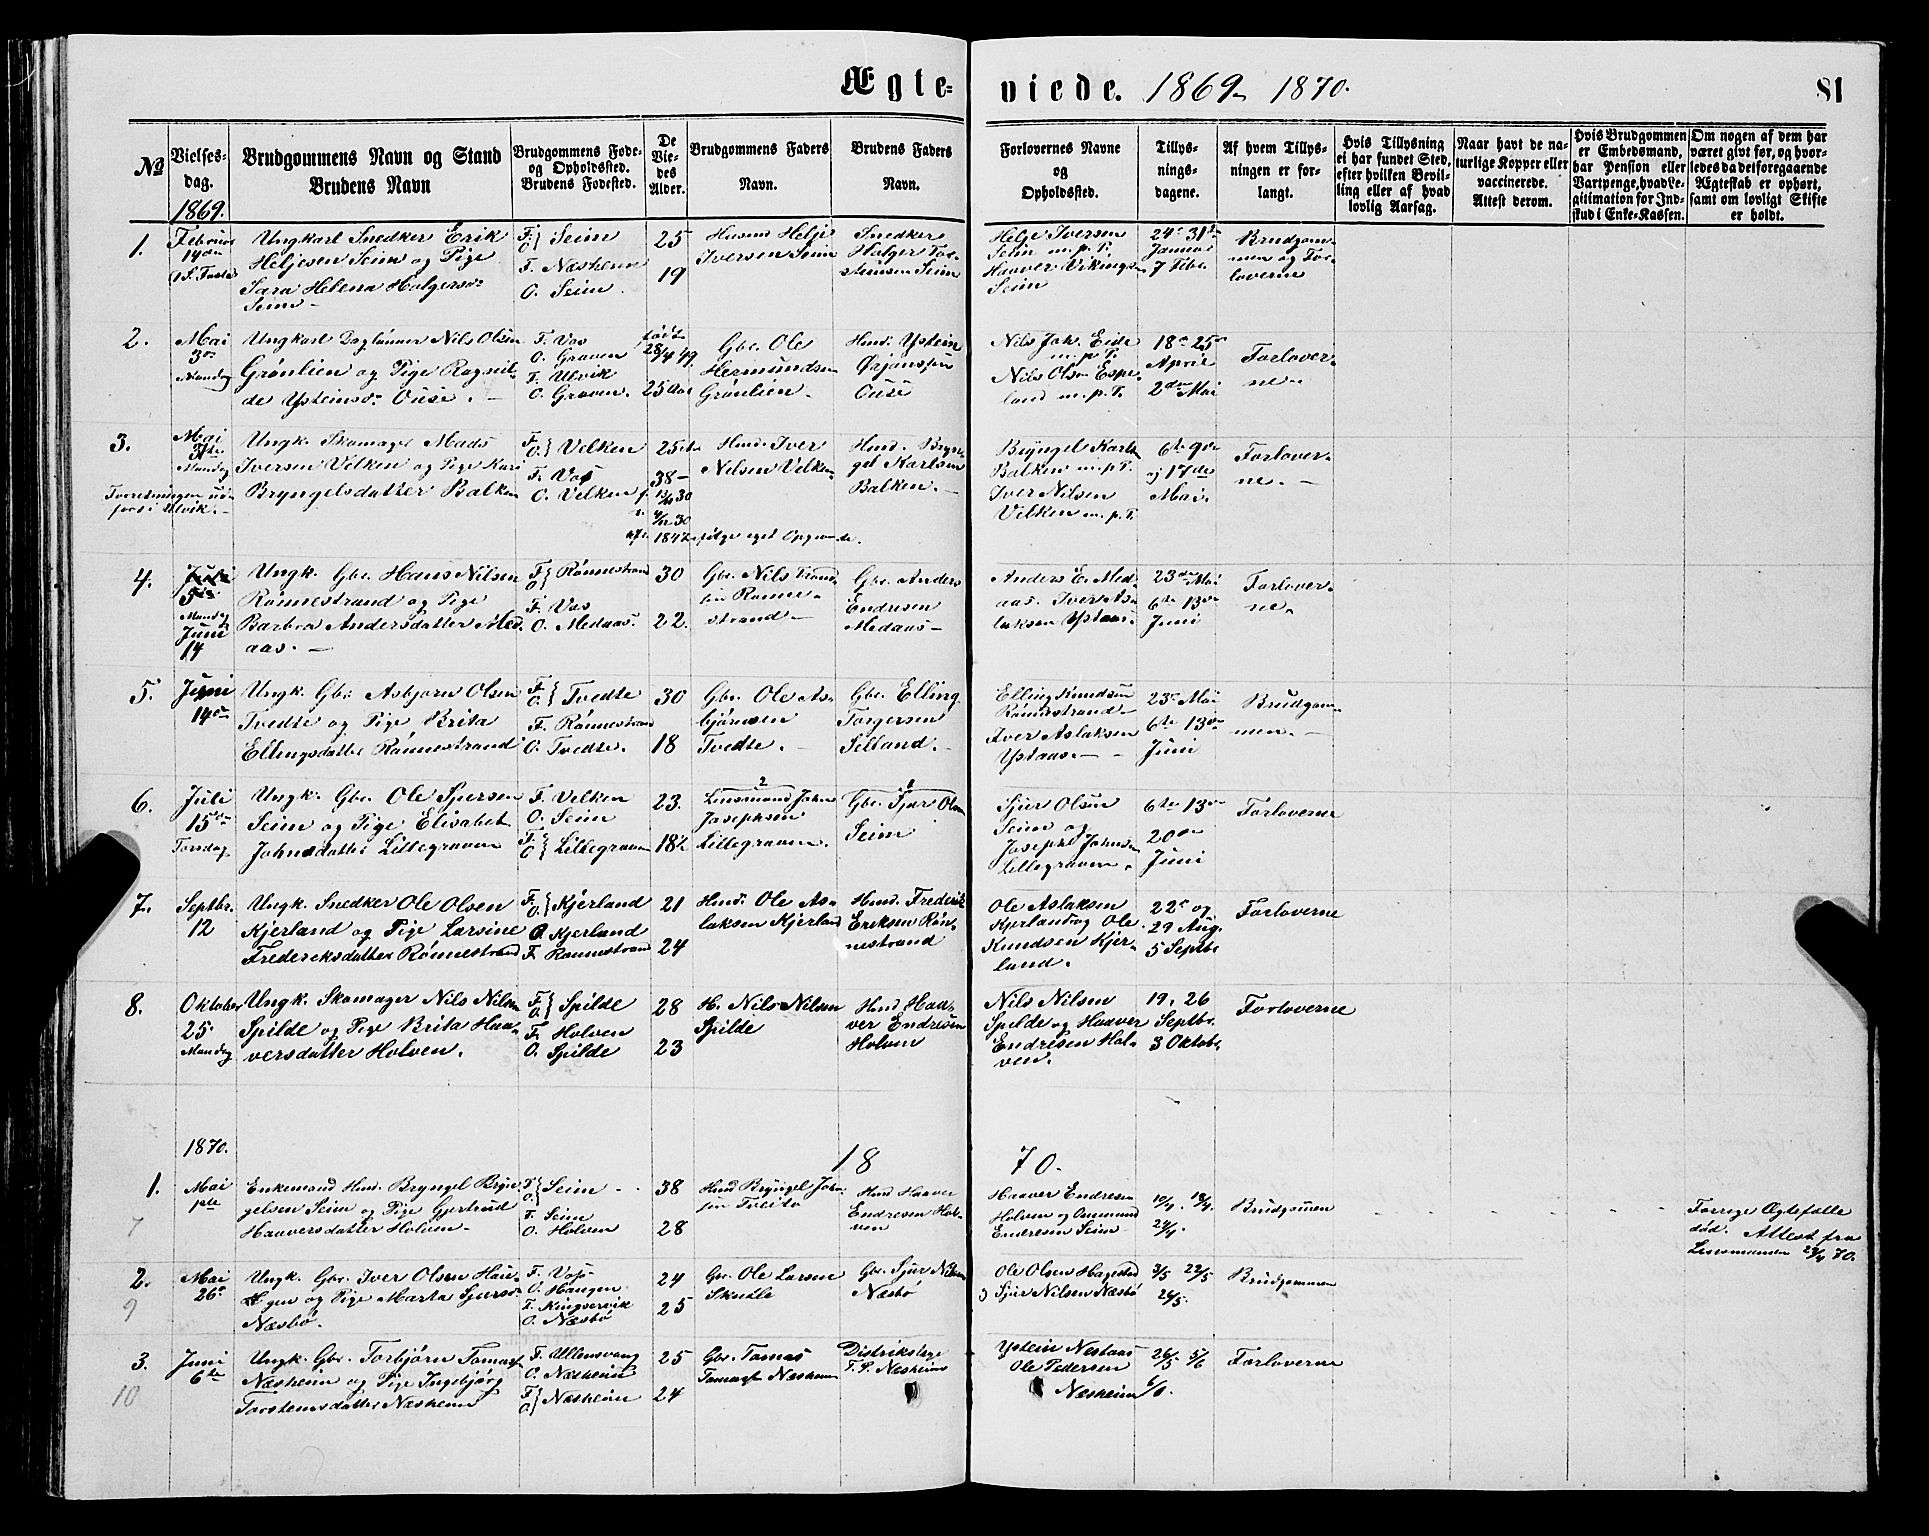 Ægte=
viede. 1869 1870.
81
No
Vielses-
dag.
1869.
Brudgommens Navn og Stand
Brudens Navn
Brudgommens Føde-
og Opholdssted.
Brudens Fødested.
De
Vie-
des
Alder.
Brudgommens Faders
Navn.
Brudens Faders
Navn.
Forlovernes Navne
og
Opholdssted.
Tillys-
nings-
dagene.
Af hvem Tillys-
ningen er for-
langt.
Hvis Tillysning
ei har fundet Sted,
efter hvilken Bevil-
ling eller af hvad
lovlig Aarsag.
Naar havt de na-
turlige Kopper eller
vaccinerede.
Attest derom.
Hvis Brudgommen
er Embedsmand,
har Pension eller
Vartpenge, hvad Le-
gitimation for Ind-
skud i Enke-Kassen.
Om nogen af dem har
været givt før, og hvor-
ledes da det foregaaende
Ægteskab er ophørt,
samt om lovligt Skifte
er holdt.
1.
Februar
14de
1 S. Faste
Ungkarl Snedker Erik
Heljesen Seim og Pige
Sara Helena Holgersd.
Seim
F.
O. } Seim
F. Næsheim
O. Seim
25
19
Husmd Helje
Iversen Seim
Snedker
Holger Tor-
steinsen Seim
Helje Iversen
Seim m. p. P.
Haaver Vikings.
Seim
24. 31te
Januar
7 Feb.
Brudgom-
men og For-
loverne
2.
Mai
3die
Mandag
Ungkarl Daglønner Nils Olsen
Grønlien og Pige Ragnil-
de Ysteinsd. Ouse.
F. Vos
O. Graven
F. Ulvik
O. Graven.
født
28/4 49
25 aar
Gbr. Ole
Hermundsen
Grønlien.
Hmd. Ystein
Ørjansen
Ouse
Nils Joh. Eide
m. p. P.
Nils Olsen Espe-
land m. p. P.
18. 25
April
2den Mai
Forlover-
ne
3.
Mai
31te
Mandag
Ungk. Skomager Mads
Iversen Velken og Pige Kari
Bryngelsdatter Balken
Forretningen ud-
ført i Ulvik.
F.
O. } Velken
F. Vos
O. Velken
25
38
30
30
1842 ifølge eget Opgivende.
Hmd. Iver
Nilsen Velken
Hmd. Bryn-
gel Karlsen
Balken.
Bryngel Karls.
Balken m. p. P.
Iver Nilsen
Velken m. p. P.
6te 9de
og 17de
Mai.
Forlover-
ne.
4.
Mandag
Juni
14
Ungk. Gbr. Hans Nilsen
Rønnestrand og Pige
Barbra Andersdatter Med-
aas.
F.
O. } Rønnestrand
F. Vos
O. Medaas.
30
22.
Gbr. Nils
Rønne-
strand
Gbr. Anders
Endresen
Medaas
Anders E. Med-
aas. Iver As-
laksen Ystaas.
23de Mai
6te 13de
Juni
Forlover-
ne
5.
Juni
14de
Ungk. Gbr. Asbjørn Olsen
Tvedte og Pige Brita
Ellingsdatter Rønnestrand
F.
O. } Tvedte
F. Rønnestrand
O. Tvedte.
30
18
Gbr. Ole As-
bjørnsen
Tvedte.
Gbr. Elling
Torgersen
Selland.
Elling Knudsen
Rønnestrand
Iver Aslaksen
Ystaas.
23. Mai
6te 13de
Juni
Brudgom-
men.
6.
Juli
15de
Torsdag
Ungk. Gbr. Ole Sjursen
Seim og Pige Elisabet
Johnsdatter Lillegraven
F. Velken
O. Seim
F.
O. } Lillegraven
23.
18½
2
Lensmand John
Josephsen
Lillegraven.
1
Gbr. Sjur Olsen
Seim
Sjur Olsen
Seim og
Joseph Johnsen
Lillegraven.
6te 13de
20de
Juni
Forloverne
7.
Septbr.
12
Ungk. Snedker Ole Olsen
Kjerland og Pige Larsine
Frederiksdatter Rønnestrand
F.
O. } Kjerland
O Kjerland
F. Rønnestrand
21
24
Hmd. Ole As-
laksen Kjerland
Hmd. Frederik
Eriksen Røn-
nestrand
Ole Aslaksen
Kjerland og Ole
Knudsen Kjer-
land.
22de og
29 Aug.
5 Septbr
Forloverne
8.
Oktober
25
Mandag
Ungk. Skomager Nils Nilsen
Spilde og Pige Brita Haa-
versdatter Holven.
F.
O. } Spilde
F. Holven
O. Spilde
28
23
H. Nils Nilsen
Spilde
Hmd Haa-
ver Endresen
Holven
Nils Nilsen
Spilde og Haaver
Endresen Hol-
ven.
19, 26
Septbr.
3 Oktob.
Forloverne
1870.
18
70.
1.
7
Mai
1ste
Enkemand Hmd. Bryngel Bryn-
gelsen Seim og Pige Gjertrud
Haaversdatter Holven
F.
O. } Seim
F. Seim
O. Holven
38
28
Hmd Bryngel John-
sen Tveito
Hmd Haaver
Endresen Hol-
ven
Haaver Endresen
Holven og Ommund
Endresen Seim
10/4. 18/4.
24/4.
Brudgommen
Forrige Ægtefælle
død. Attest fra
Lensmanden 23/4 70.
2.
9
Mai
26
Ungk. Gbr. Iver Olsen Hau-
gen og Pige Marta Sjursd.
Næsbø.
F. Vos
O. Haugen
F. Kingservik
O. Næsbø
24
25
Gbr. Ole Larsen
Skutle
Gbr. Sjur Nilsen
Næsbø
Ole Olsen Hagestad
og Sjur Nilsen Næsbø
3/5 22/5
26/5.
Brudgommen
3.
10
Juni
6te
Ungk. Gbr. Torbjørn Tomass.
Næsheim og Pige Ingebjørg
Torsteinsdatter Næsheim
F. Ullensvang
O. Næsheim
F.
O. } Næsheim
25
24
Gbr. Tomas
Tomass. Næsheim
Distrikslæge
T. P. Næsheim
Ystein Nestaas
Ole Pedersen
Næsheim
26/5 5/6
6/6.
Forloverne